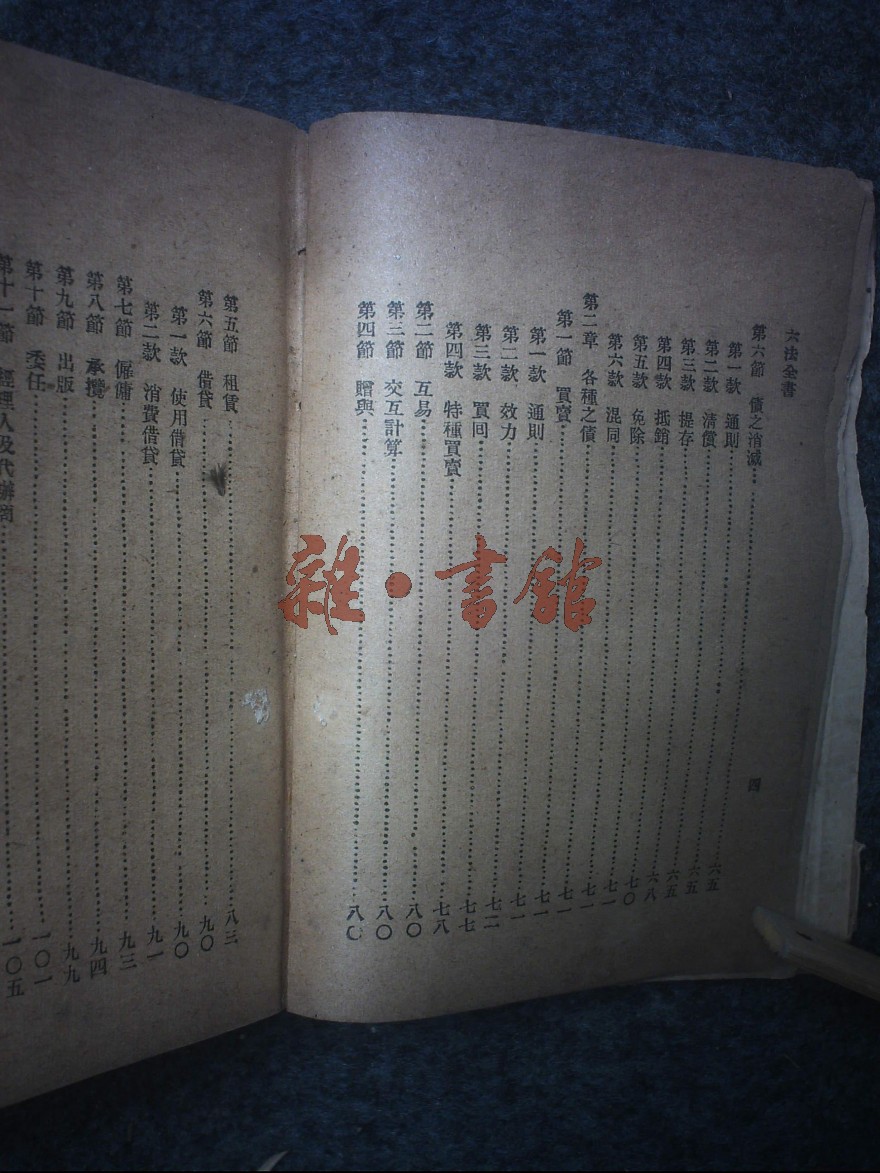 六法全書
四
第六節 債之消滅
第一款 通則
第二款 清償……六五
第三款 提存……六五
第四款 抵銷……六五
第五款 免除……六八
第六款 混同……七〇
第二章 各種之債……七一
第一節 買賣……七一
第一款 通則……七一
第二款 效力……七一
第三款 買回……七二
第四款 特種買賣……七七
第二節 互易……七八
第三節 交互計算……八〇
第四節 贈與……八〇
八〇
第五節 租賃……八三
第六節 借貸……九〇
第一款 使用借貸……九〇
第二款 消費借貸……九一
第七節 僱傭……九三
第八節 承攬……九四
第九節 出版……九九
第十節 委任……一〇一
第十一節 經理人及代辦商……一〇五
雜·書館